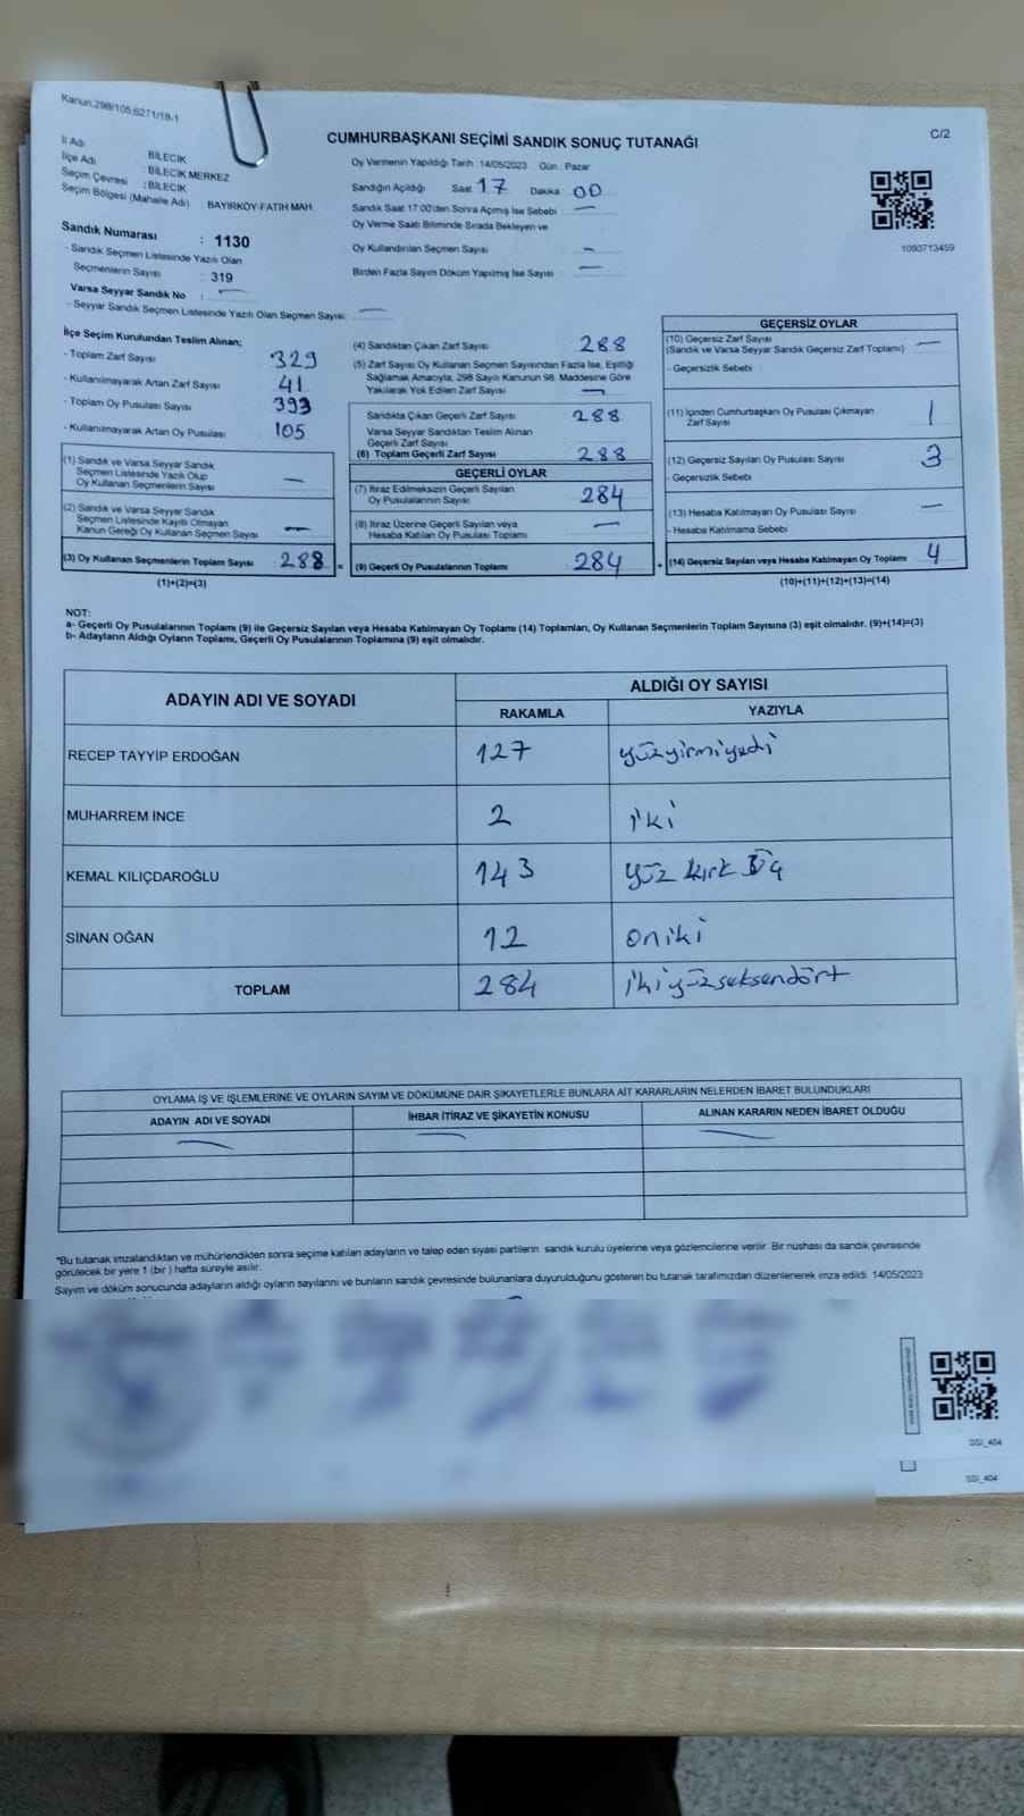 Kanun:298/105,6271/18-1
C/2
CUMHURBAŞKANI SEÇİMİ SANDIK SONUÇ TUTANAĞI
İl Adı BİLECİK
İlçe Adı : BİLECİK MERKEZ
Seçim Çevresi : BİLECİK
Seçim Bölgesi (Mahalle Adı) BAYIRKÖY-FATİH MAH.
Oy Vermenin Yapıldığı Tarih : 14/05/2023 Gün : Pazar
Sandığın Açıldığı Saat 17 Dakika 00
Sandık Saat 17:00'den Sonra Açmış İse Sebebi —
Oy Verme Saati Bitiminde Sırada Bekleyen ve
Oy Kullandırılan Seçmen Sayısı —
Birden Fazla Sayım Döküm Yapılmış İse Sayısı —
1090713459
Sandık Numarası : 1130
- Sandık Seçmen Listesinde Yazılı Olan
Seçmenlerin Sayısı : 319
Varsa Seyyar Sandık No : —
- Seyyar Sandık Seçmen Listesinde Yazılı Olan Seçmen Sayısı: —
İlçe Seçim Kurulundan Teslim Alınan;
- Toplam Zarf Sayısı 329
- Kullanılmayarak Artan Zarf Sayısı 41
- Toplam Oy Pusulası Sayısı 393
- Kullanılmayarak Artan Oy Pusulası 105
(1) Sandık ve Varsa Seyyar Sandık
Seçmen Listesinde Yazılı Olup
Oy Kullanan Seçmenlerin Sayısı —
(2) Sandık ve Varsa Seyyar Sandık
Seçmen Listesinde Kayıtlı Olmayan
Kanun Gereği Oy Kullanan Seçmen Sayısı —
(3) Oy Kullanan Seçmenlerin Toplam Sayısı 288
(1)+(2)=(3)
(4) Sandıktan Çıkan Zarf Sayısı 288
(5) Zarf Sayısı Oy Kullanan Seçmen Sayısından Fazla İse, Eşitliği
Sağlamak Amacıyla, 298 Sayılı Kanunun 98. Maddesine Göre
Yakılarak Yok Edilen Zarf Sayısı —
Sandıkta Çıkan Geçerli Zarf Sayısı 288
Varsa Seyyar Sandıktan Teslim Alınan
Geçerli Zarf Sayısı
(6) Toplam Geçerli Zarf Sayısı 288
GEÇERLİ OYLAR
(7) İtiraz Edilmeksizin Geçerli Sayılan
Oy Pusulalarının Sayısı 284
(8) İtiraz Üzerine Geçerli Sayılan veya
Hesaba Katılan Oy Pusulası Toplamı —
= (9) Geçerli Oy Pusulalarının Toplamı 284
GEÇERSİZ OYLAR
(10) Geçersiz Zarf Sayısı
(Sandık ve Varsa Seyyar Sandık Geçersiz Zarf Toplamı) —
- Geçersizlik Sebebi
(11) İçinden Cumhurbaşkanı Oy Pusulası Çıkmayan
Zarf Sayısı 1
(12) Geçersiz Sayılan Oy Pusulası Sayısı 3
- Geçersizlik Sebebi
(13) Hesaba Katılmayan Oy Pusulası Sayısı —
- Hesaba Katılmama Sebebi
+ (14) Geçersiz Sayılan veya Hesaba Katılmayan Oy Toplamı 4
(10)+(11)+(12)+(13)=(14)
NOT:
a- Geçerli Oy Pusulalarının Toplamı (9) ile Geçersiz Sayılan veya Hesaba Katılmayan Oy Toplamı (14) Toplamları, Oy Kullanan Seçmenlerin Toplam Sayısına (3) eşit olmalıdır. (9)+(14)=(3)
b- Adayların Aldığı Oyların Toplamı, Geçerli Oy Pusulalarının Toplamına (9) eşit olmalıdır.
ADAYIN ADI VE SOYADI ALDIĞI OY SAYISI
RAKAMLA YAZIYLA
RECEP TAYYİP ERDOĞAN 127 yüzyirmiyedi
MUHARREM İNCE 2 iki
KEMAL KILIÇDAROĞLU 143 yüz kırk üç
SİNAN OĞAN 12 oniki
TOPLAM 284 ikiyüzseksendört
OYLAMA İŞ VE İŞLEMLERİNE VE OYLARIN SAYIM VE DÖKÜMÜNE DAİR ŞİKAYETLERLE BUNLARA AİT KARARLARIN NELERDEN İBARET BULUNDUKLARI
ADAYIN ADI VE SOYADI İHBAR İTİRAZ VE ŞİKAYETİN KONUSU ALINAN KARARIN NEDEN İBARET OLDUĞU
— — —
*Bu tutanak imzalandıktan ve mühürlendikten sonra seçime katılan adayların ve talep eden siyasi partilerin sandık kurulu üyelerine veya gözlemcilerine verilir. Bir nüshası da sandık çevresinde
görülecek bir yere 1 (bir) hafta süreyle asılır.
Sayım ve döküm sonucunda adayların aldığı oyların sayılarını ve bunların sandık çevresinde bulunanlara duyurulduğunu gösteren bu tutanak tarafımızdan düzenlenerek imza edildi. 14/05/2023
SSI_404
SSI_404